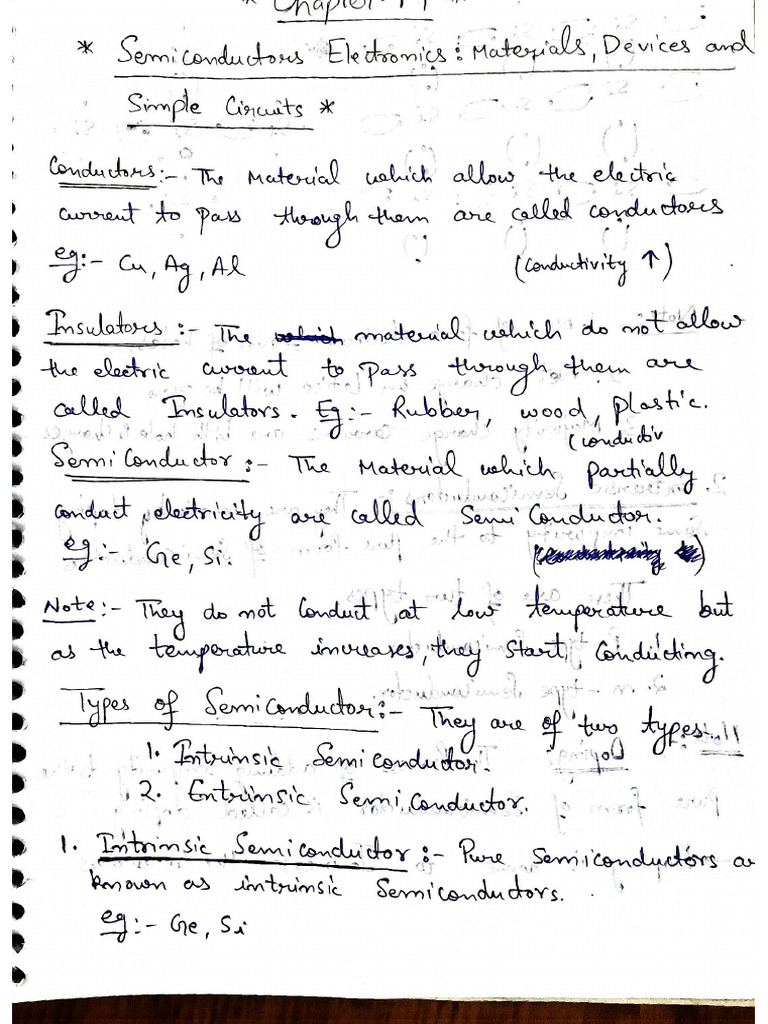 * Chapter-14 *
* Semiconductors Electronics: Materials, Devices and
Simple Circuits *
Conductors:- The Material which allow the electric
current to pass through them are called conductors
eg:- Cu, Ag, Al (conductivity ↑)
Insulators:- The which material which do not allow
the electric current to pass through them are
called Insulators. Eg:- Rubber, wood, plastic.
(conductiv
Semi Conductor:- The Material which partially
conduct electricity are called Semi Conductor.
eg:- Ge, Si.
Note:- They do not conduct at low temperature but
as the temperature increases, they start conducting.
Types of Semiconductor:- They are of two types.
1. Intrinsic Semiconductor.
2. Entrinsic Semiconductor.
1. Intrinsic Semiconductor:- Pure Semiconductors a
known as intrinsic Semiconductors.
eg:- Ge, Si